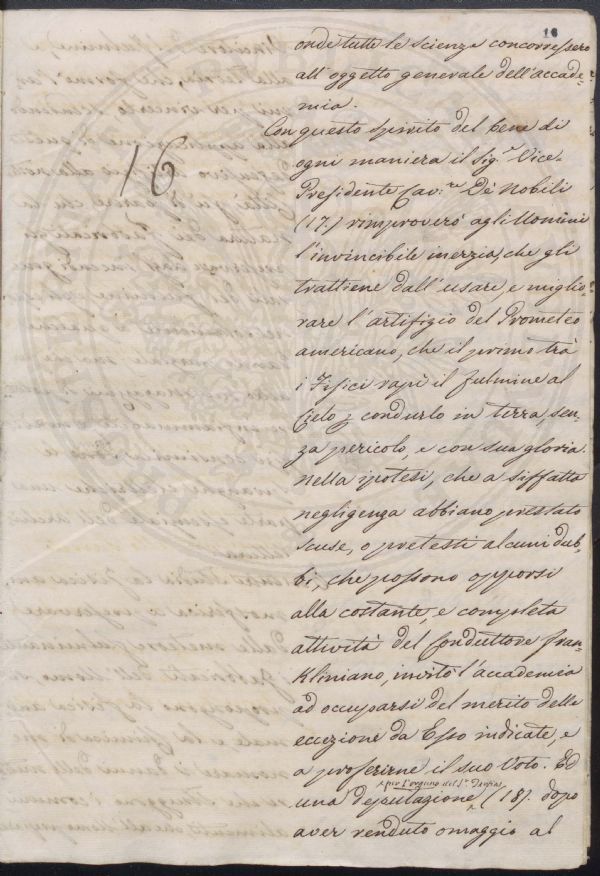 16
onde tutte le scienze concorressero
all'oggetto generale dell'accade-
mia.
16
Con questo spirito del bene di
ogni maniera il Sig.r Vice-
Presidente Cav:re De Nobili
(17.) rimproverò agli Uomini
l'invincibile inerzia, che gli
trattiene dall'usare, e miglio-
rare l'artifizio del Prometeo
americano, che il primo trà
i Fisici rapì il fulmine al
Cielo p condurlo in terra, sen-
za pericolo, e con sua gloria.
nella ipotesi, che a siffatta
negligenza abbiano prestato
scuse, o pretesti alcuni dub-
bi, che possono opporsi
alla costante, e completa
attività del Conduttore fran-
Kliniano, invitò l'accademia
ad occuparsi del merito delle
eccezione da Esso indicate, e
a proferirne il suo Voto. Ed
per l'organo del S.r
una deputazione, (18). dopo
aver renduto omaggio al